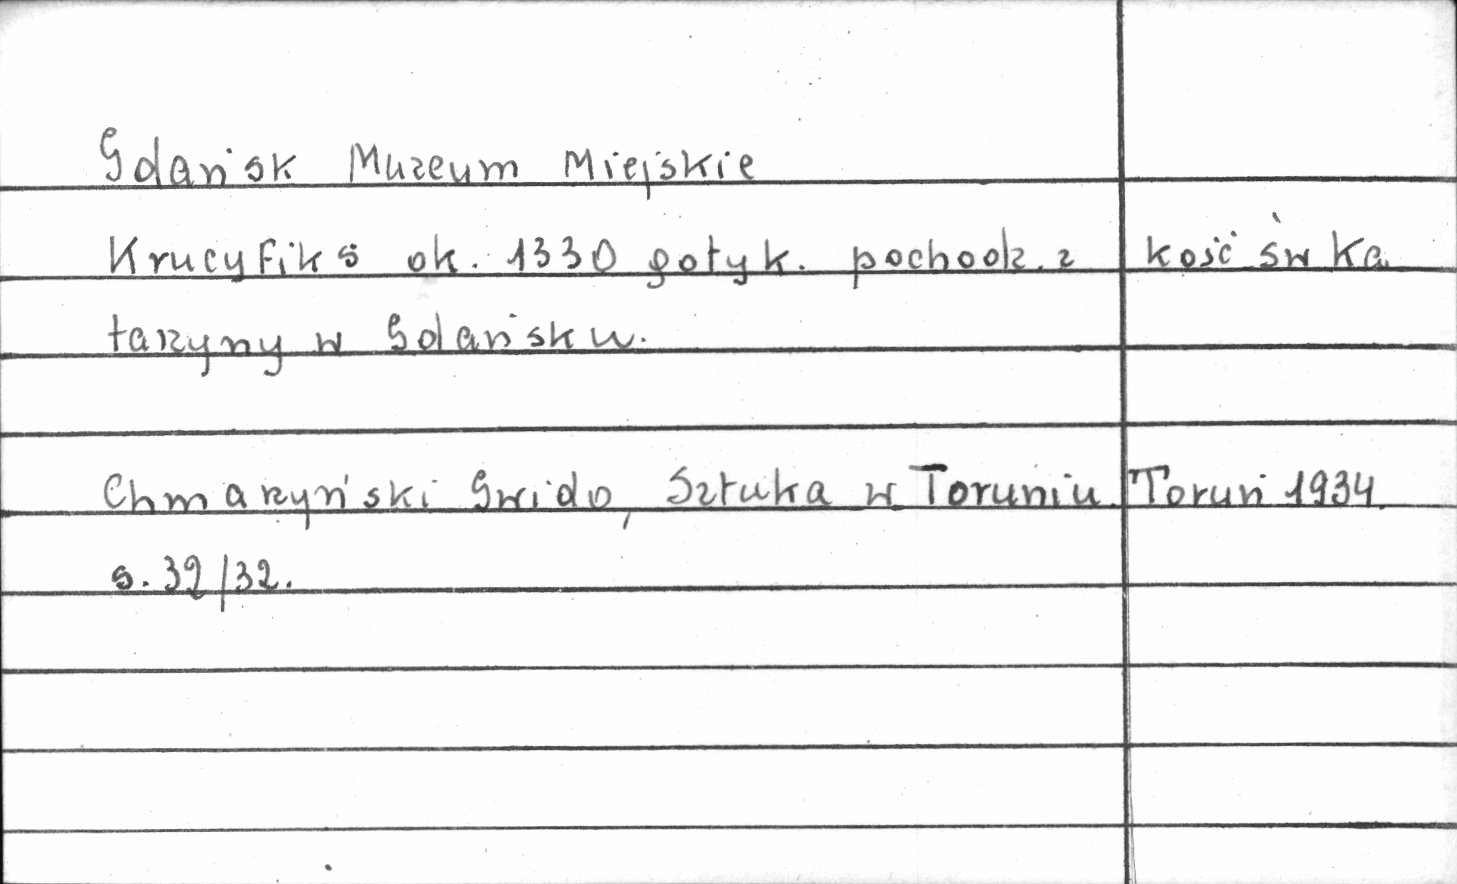 Gdańsk Muzeum Miejskie
Krucyfiks ok. 1330 gotyk. pochodz. z kość św Ka
tarzyny w Gdańsku.
Chmarzyński Gwido, Sztuka w Toruniu. Toruń 1934.
s. 32/32.